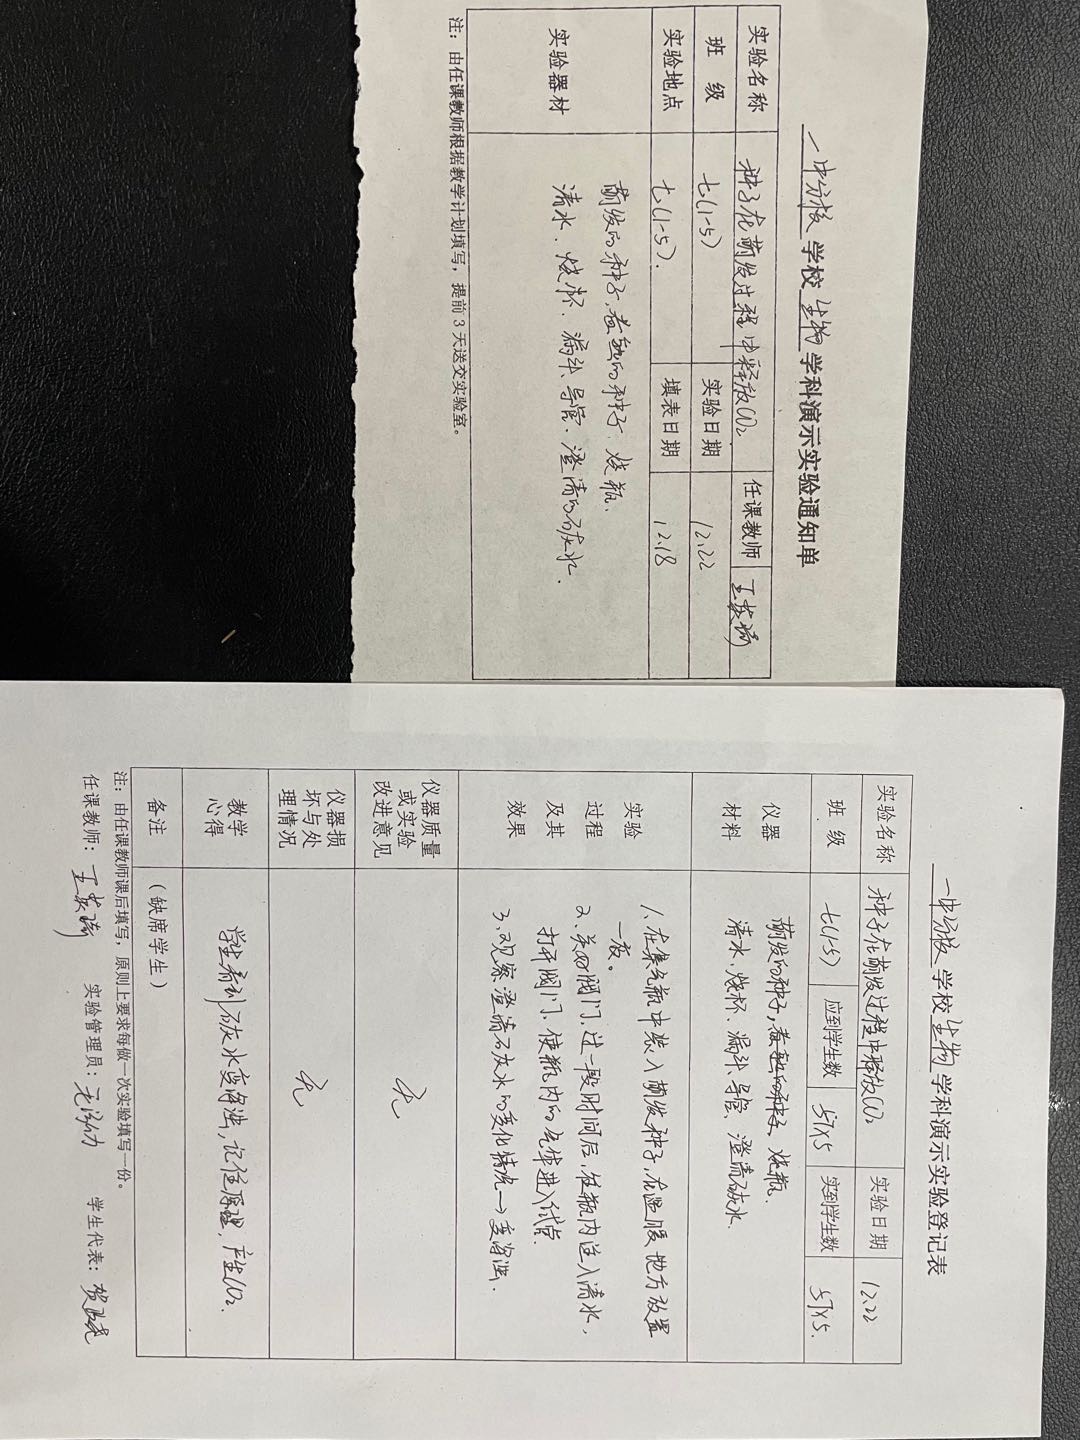 一中分校 学校 生物 学科演示实验通知单
实验名称 种子在萌发过程中释放CO₂ 任课教师
班 级 七(1-5) 实验日期 12.22
实验地点 七(1-5). 填表日期 12.18
实验器材
萌发的种子,煮熟的种子、烧瓶、
清水、烧杯、漏斗、导管、澄清的石灰水.
注:由任课教师根据教学计划填写,提前3天送交实验室。
一中分校 学校 生物 学科演示实验登记表
实验名称 种子在萌发过程中释放CO₂ 实验日期 12.22
班 级 七(1-5) 应到学生数 57×5 实到学生数 57×5.
仪器
材料
萌发的种子,煮熟的种子、烧瓶、
清水、烧杯、漏斗、导管、澄清石灰水.
实验
过程
及其
效果
1、在集气瓶中装入萌发种子,在温暖地方放置
一夜。
2、关闭阀门,过一段时间后,往瓶内送入清水,
打开阀门、使瓶内的气体进入试管.
3、观察澄清石灰水的变化情况→变浑浊.
仪器质量
或实验
改进意见
无
仪器损
坏与处
理情况
无
教学
心得
学生看到石灰水变浑浊,记住原理,产生CO₂.
备注 (缺席学生)
注:由任课教师课后填写,原则上要求每做一次实验填写一份。
任课教师: 实验管理员: 学生代表: